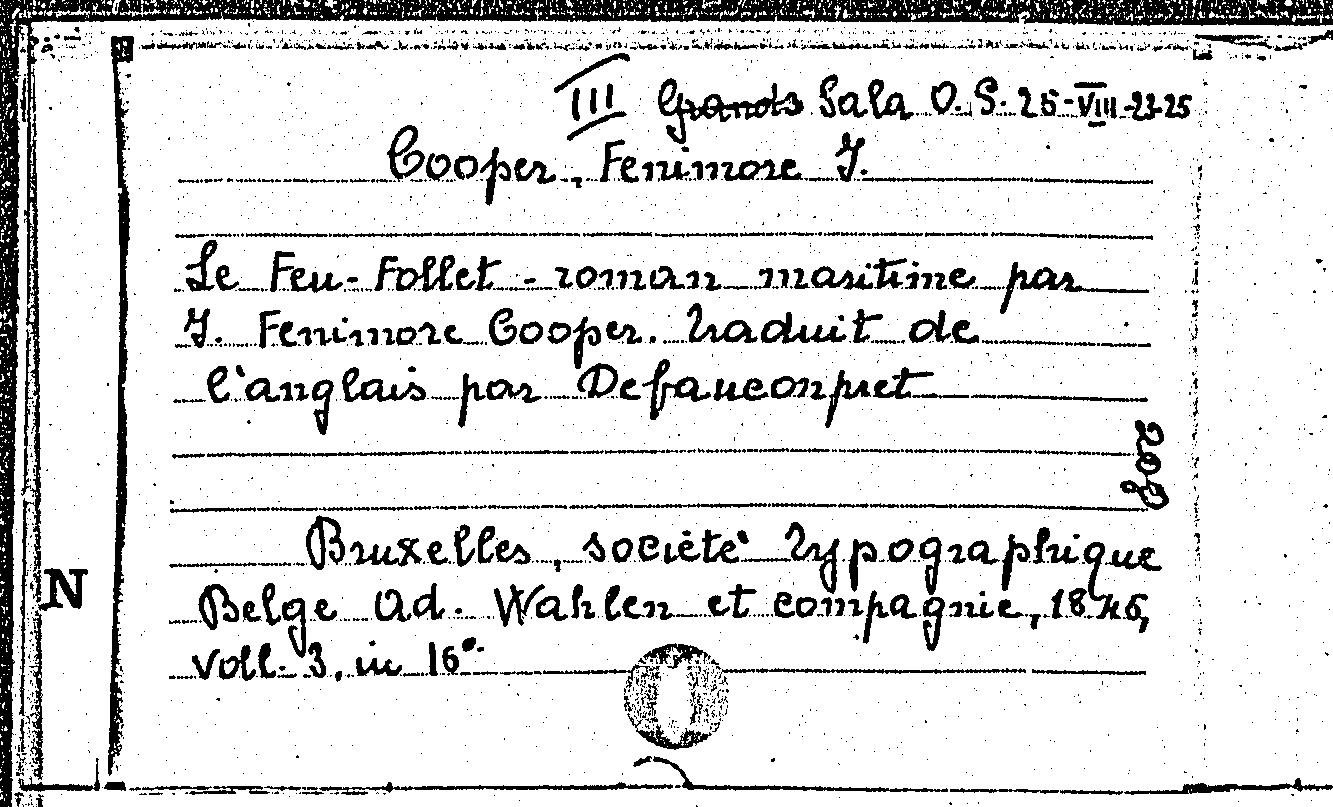 III Grands Sala O. S. 25-VIII-23-25
Cooper, Fenimore J.
Le Feu-Follet - roman maritime par
J. Fenimore Cooper. Traduit de
l'anglais par Defauconpret
208
Bruxelles, societè typographique
N
Belge Ad. Wahlen et compagnie, 1845,
voll. 3. in 16°.